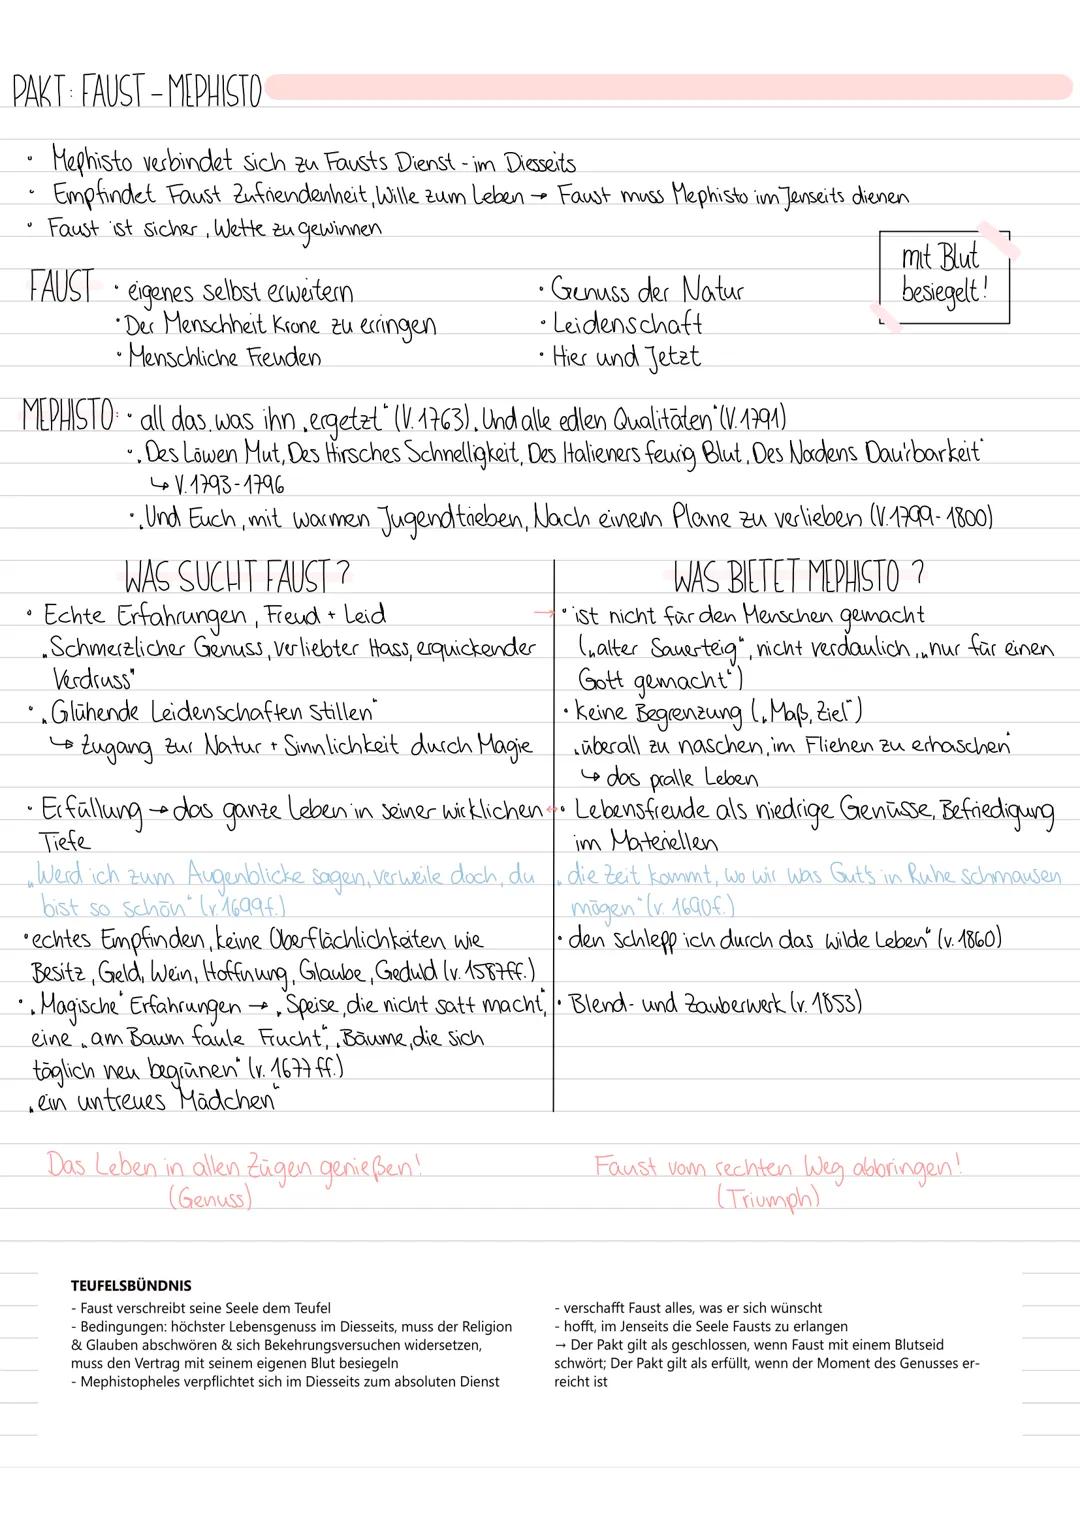 PAKT: FAUST – MEPHISTO
• Mephisto verbindet sich zu Fausts Dienst - im Diesseits
• Empfindet Faust Zufriendenheit, Wille zum Leben → Faust muss Mephisto im Jenseits dienen
• Faust ist sicher, Wette zu gewinnen
mit Blut
besiegelt!
FAUST • eigenes selbst erweitern
• Der Menschheit Krone zu erringen
• Menschliche Freuden
• Genuss der Natur
• Leidenschaft
• Hier und Jetzt
MEPHISTO: • all das, was ihn „ergetzt“ (V. 1763) „Und alle edlen Qualitäten“ (V. 1791)
• „Des Löwen Mut, Des Hirsches Schnelligkeit, Des Italieners feurig Blut, Des Nordens Dau'rbarkeit“
↳ V. 1793-1796
• „Und Euch, mit warmen Jugendtrieben, Nach einem Plane zu verlieben (V. 1799-1800)
WAS SUCHT FAUST?
• Echte Erfahrungen, Freud + Leid →
„Schmerzlicher Genuss, verliebter Hass, erquickender
Verdruss"
• „Glühende Leidenschaften stillen“
↳ Zugang zur Natur + Sinnlichkeit durch Magie
• Erfüllung → das ganze Leben in seiner wirklichen ↔
Tiefe
„Werd ich zum Augenblicke sagen, verweile doch, du
bist so schön“ (v. 1699f.)
• echtes Empfinden, keine Oberflächlichkeiten wie
Besitz, Geld, Wein, Hoffnung, Glaube, Geduld (v. 1587ff.)
• „Magische“ Erfahrungen → „Speise, die nicht satt macht,
eine „am Baum faule Frucht“, „Bäume, die sich
täglich neu begrünen“ (v. 1677 ff.)
„ein untreues Mädchen“
WAS BIETET MEPHISTO ?
• ist nicht für den Menschen gemacht
(„alter Sauerteig“, nicht verdaulich, „nur für einen
Gott gemacht“)
• keine Begrenzung („Maß, Ziel“)
„überall zu naschen, im Fliehen zu erhaschen“
↳ das pralle Leben
• Lebensfreude als niedrige Genüsse, Befriedigung
im Materiellen
„die Zeit kommt, wo wir was Gut's in Ruhe schmausen
mögen“ (v. 1690f.)
• den schlepp ich durch das wilde Leben“ (v. 1860)
• Blend- und Zauberwerk (v. 1853)
Das Leben in allen Zügen genießen!
(Genuss)
Faust vom rechten Weg abbringen!
(Triumph)
TEUFELSBÜNDNIS
- Faust verschreibt seine Seele dem Teufel
- Bedingungen: höchster Lebensgenuss im Diesseits, muss der Religion
& Glauben abschwören & sich Bekehrungsversuchen widersetzen,
muss den Vertrag mit seinem eigenen Blut besiegeln
- Mephistopheles verpflichtet sich im Diesseits zum absoluten Dienst
- verschafft Faust alles, was er sich wünscht
- hofft, im Jenseits die Seele Fausts zu erlangen
→ Der Pakt gilt als geschlossen, wenn Faust mit einem Blutseid
schwört; Der Pakt gilt als erfüllt, wenn der Moment des Genusses er-
reicht ist